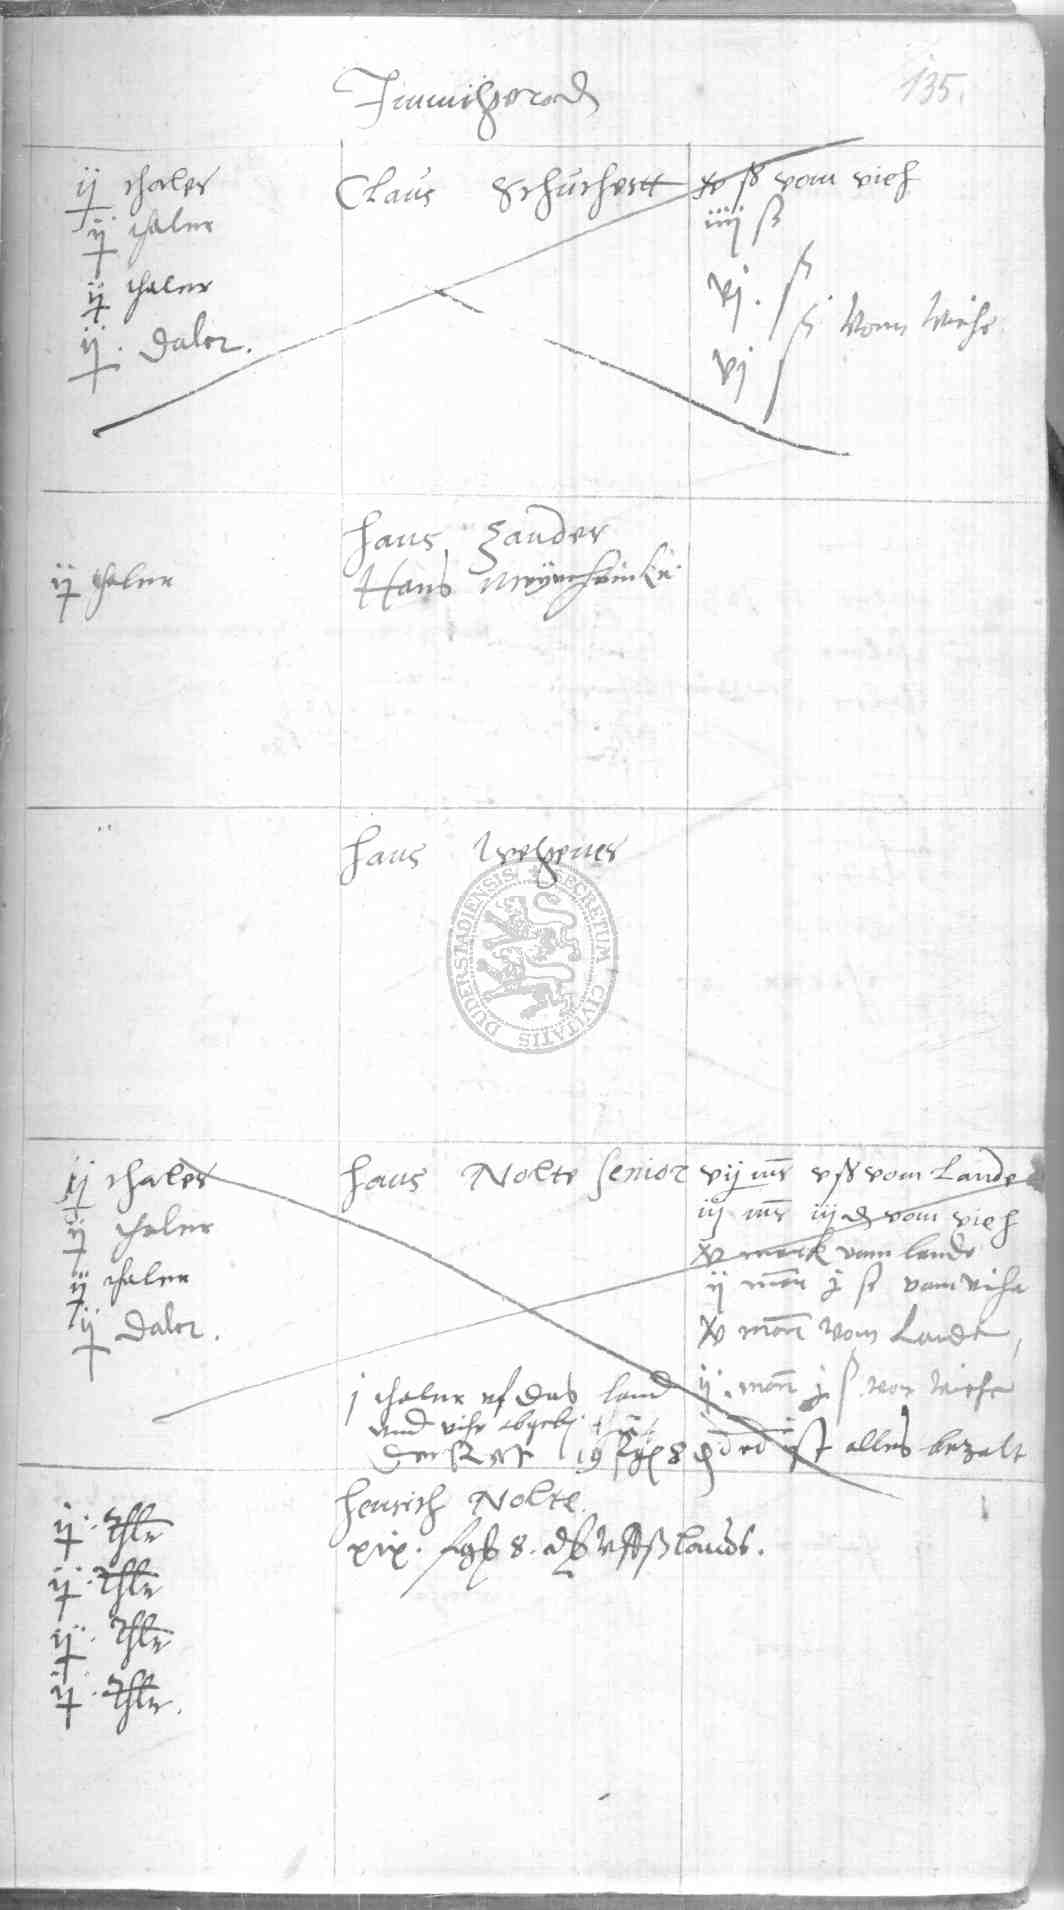 135.
ij thaler Claus Schuchertt xv ß vom vieh
ij thaler iiij ß
ij thaler vj. ß
ij. Daler. vj ß Vom Viehe
Hans Zander
ij thaler Hans
Hans Wegener
SECRETUM CIVITATIS DUDERSTADIENSIS
ij thaler Hans Nolte senior vij mr v ß vom Lande
ij thaler iij mr iij d vom vieh
ij thaler xv mark vom lande
ij Daler. ij mr j ß vom vihe
xv mr Vom Lande
j thaler uf das land ij. mr j ß von Viehe
und vihe
19 8 ist alles bezalt
Henrich Nolte.
ij. thlr xix. 8. lands.
ij. thlr
ij. thlr
ij. thlr.